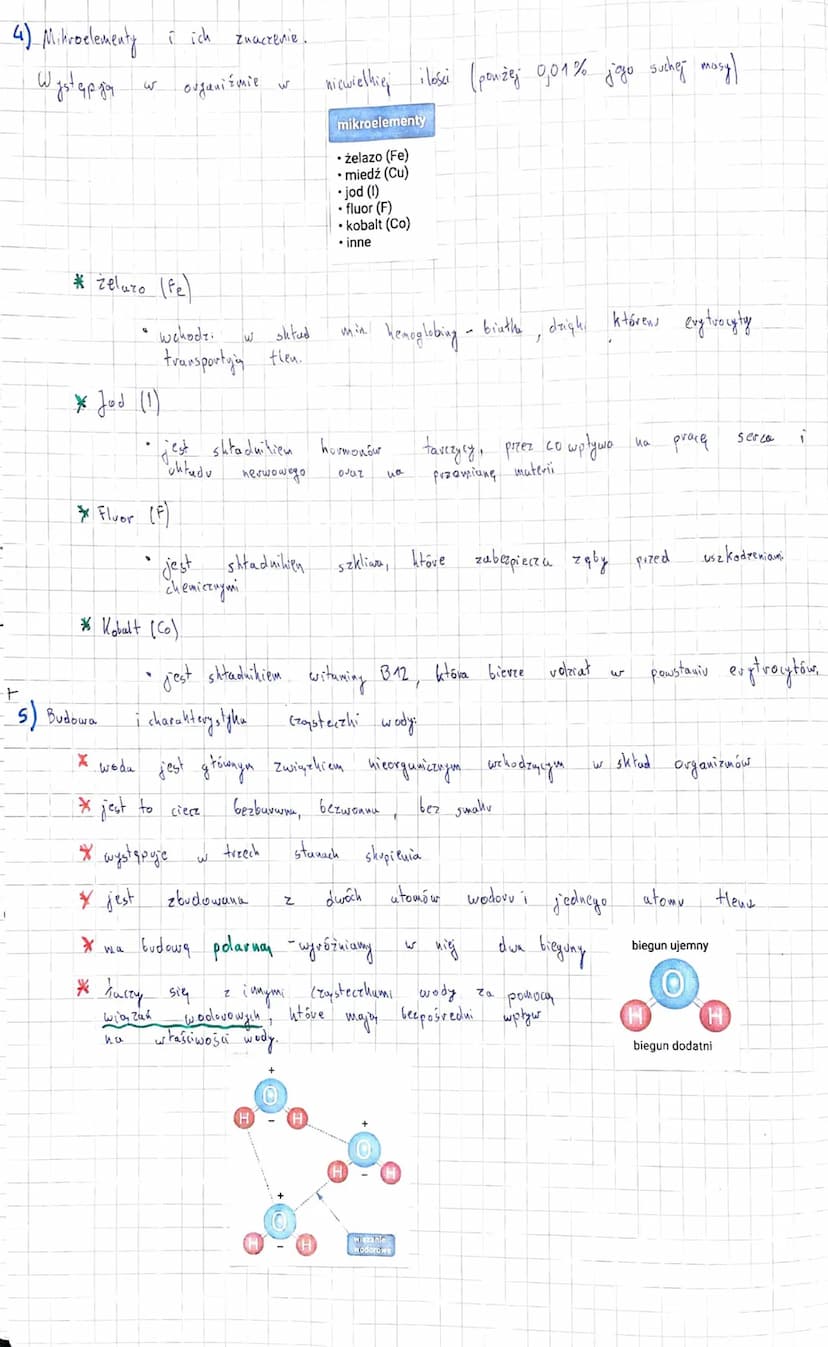 4) Mikroelementy i ich znaczenie.
Występują w organiźmie w niewielkiej ilości (poniżej 0,01% jego suchej masy)
mikroelementy
• żelazo (Fe)
• miedź (Cu)
• jod (I)
• fluor (F)
• kobalt (Co)
• inne
* żelazo (Fe)
• wchodzi w skład min hemoglobiny - białka, dzięki któremu erytrocyty
transportują tlen.
* Jod (I)
• jest składnikiem hormonów tarczycy, przez co wpływa na pracę serca i
układu nerwowego oraz na przemianę materii
* Fluor (F)
• jest składnikiem szkliwa, które zabezpiecza zęby przed uszkodzeniami
chemicznymi
* Kobalt (Co)
• jest składnikiem witaminy B12, która bierze udział w powstaniu erytrocytów.
5) Budowa i charakterystyka cząsteczki wody:
* woda jest głównym związkiem nieorganicznym wchodzącym w skład organizmów
* jest to ciecz bezbarwna, bezwonna, bez smaku
* występuje w trzech stanach skupienia
* jest zbudowana z dwóch atomów wodoru i jednego atomu tlenu
* ma budowę polarną - wyróżniamy w niej dwa bieguny
biegun ujemny
O
H H
biegun dodatni
* łączy się z innymi cząsteczkami wody za pomocą
wiązań wodorowych, które mają bezpośredni wpływ
na właściwości wody.
+
O
H - H
+
O
H - H
+
O
H - H
wiązanie
wodorowe